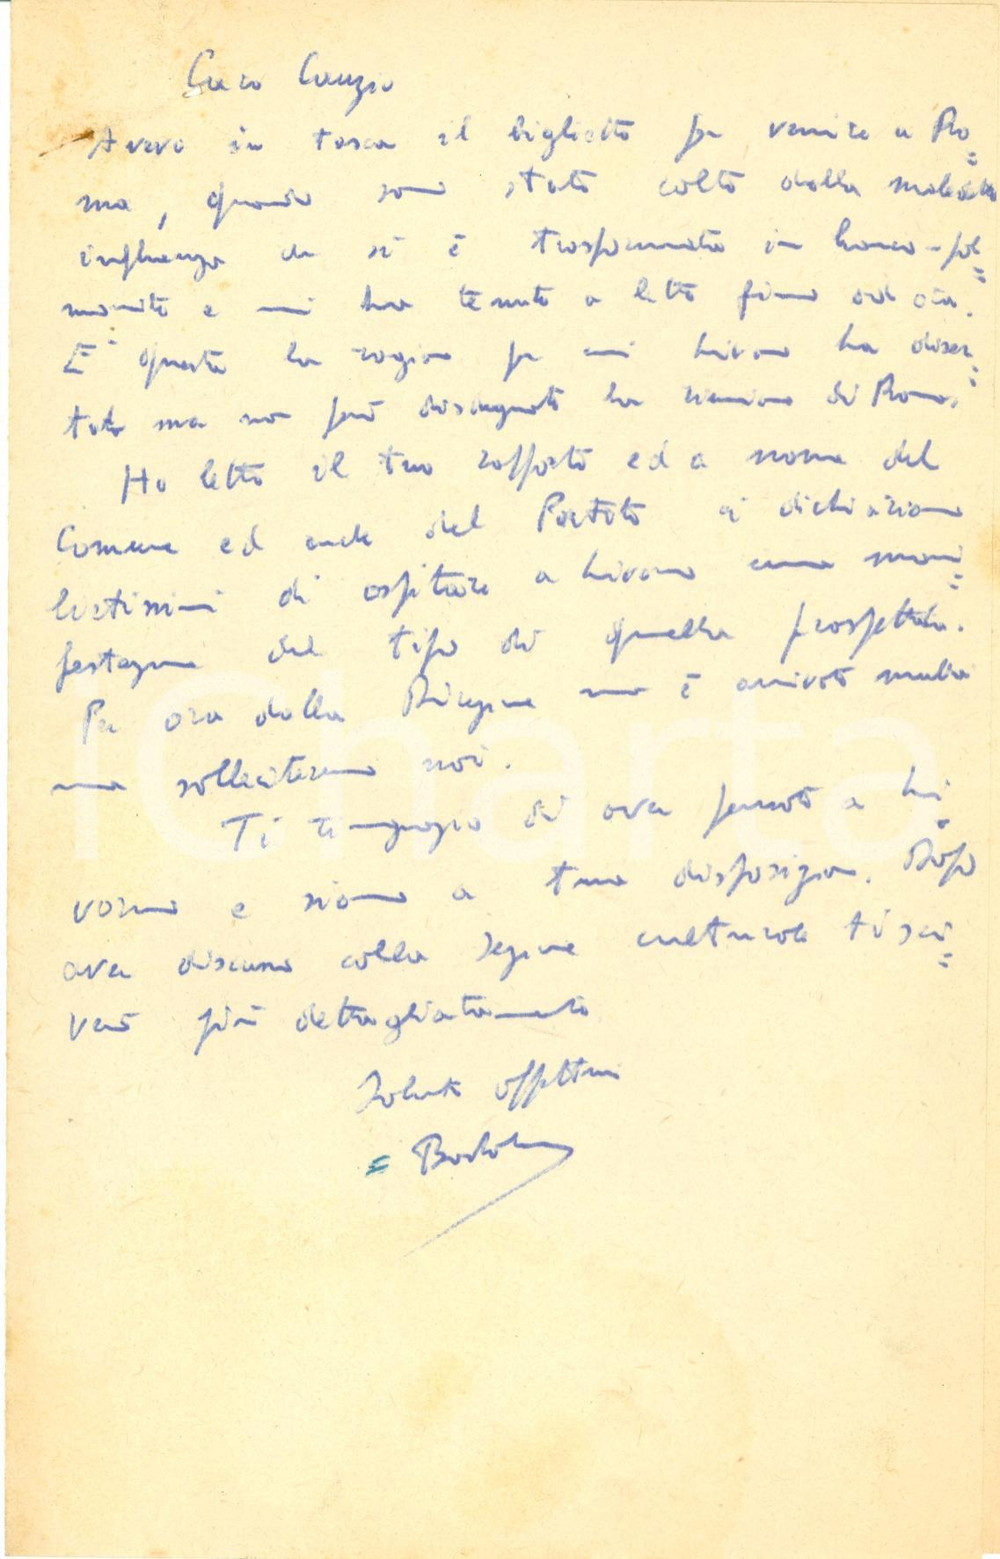 Caro Canzio
Avevo in tasca il biglietto per venire a Ro=
ma, quando sono stato colto dalla maledetta
influenza che si è trasformata in bronco-pol=
monite e mi ha tenuto a letto fino ad ora.
E' questa la ragione per cui Livorno ha diser=
tato ma non può disdegnato la riunione di Roma.
Ho letto il tuo rapporto ed a nome del
Comune ed anche del Partito ci dichiariamo
lietissimi di ospitare a Livorno una mani=
festazione del tipo di quella prospettata.
Per ora dalla Direzione non è arrivato nulla
ma solleciteremo noi.
Ti ringrazio di aver pensato a Li=
vorno e siamo a tua disposizione. Dopo
aver discusso colla sezione culturale ti scri=
verò più dettagliatamente
Saluti affettuosi
= 
iCharta